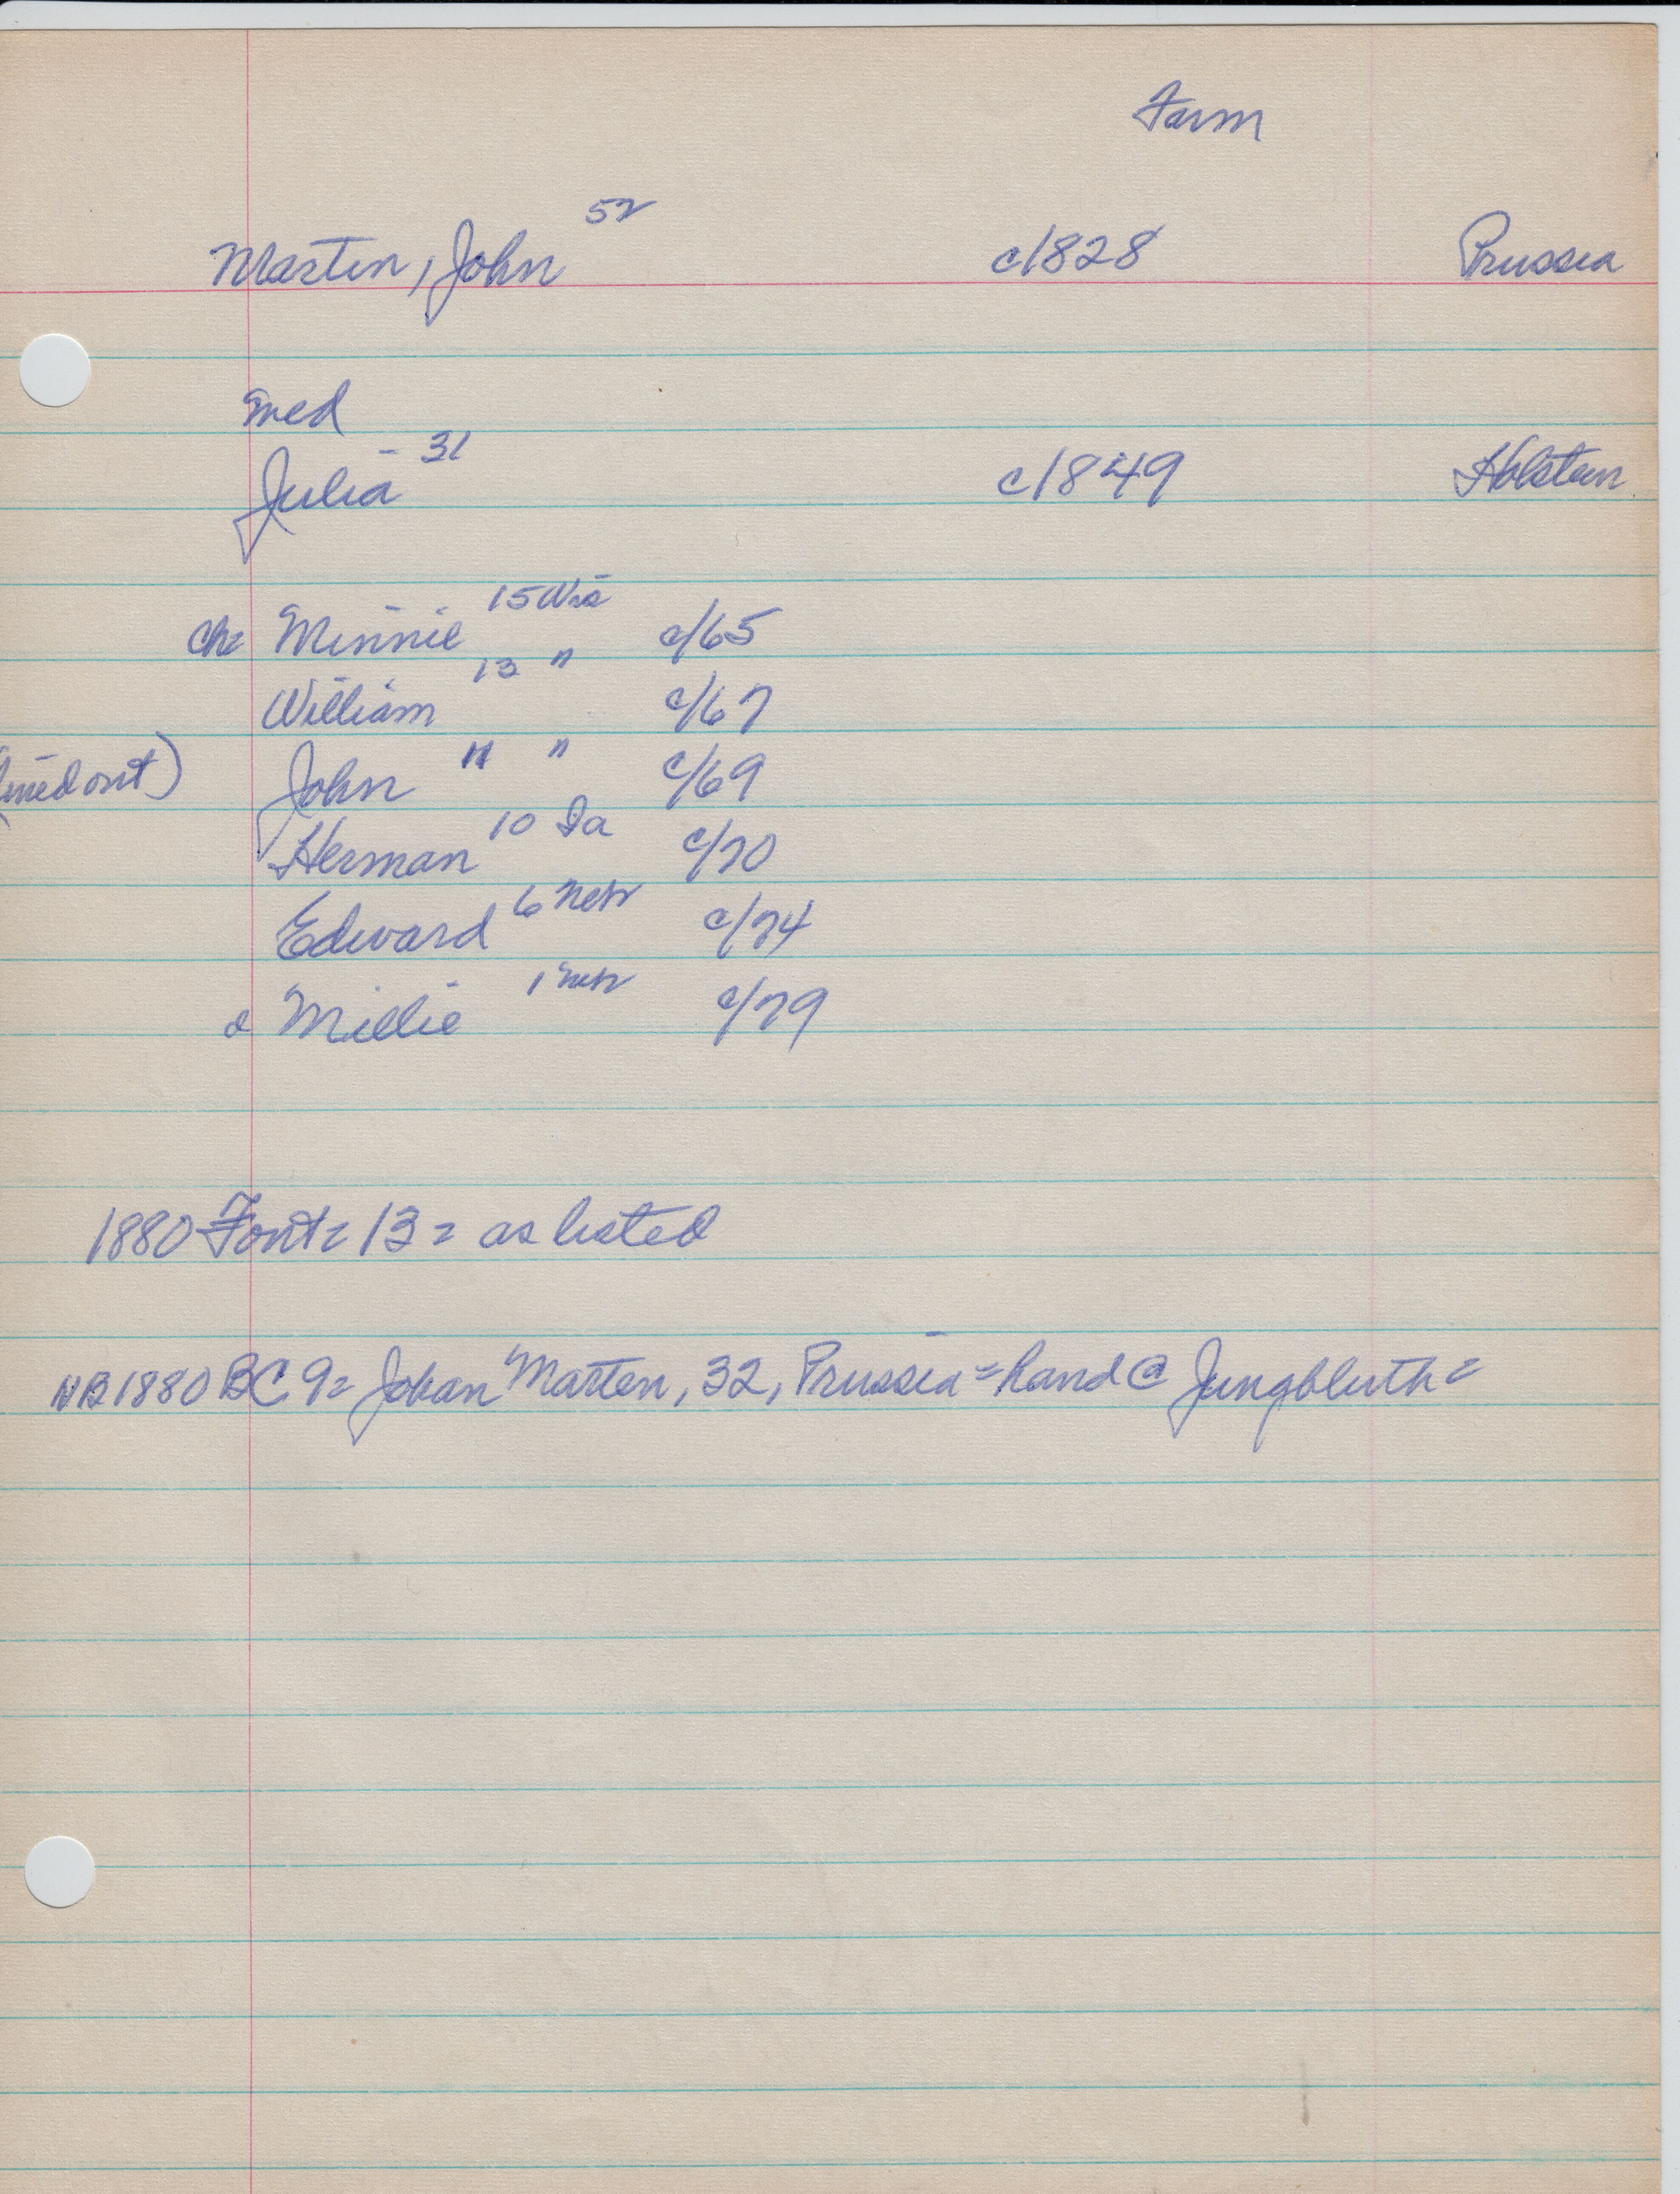 Farm
Martin, John 52 c1828 Prussia
med
Julia 31 c1849 Holstein
ch= Minnie 15 Wis c/65
William 13 " c/67
lined out) John 11 " c/69
Herman 10 Ia c/70
Edward 6 Nebr c/74
& Millie 1 Nebr c/79
1880 Font= 13= as listed
NB 1880 BC 9= Johan Marten, 32, Prussia = hand @ Jungbluth =